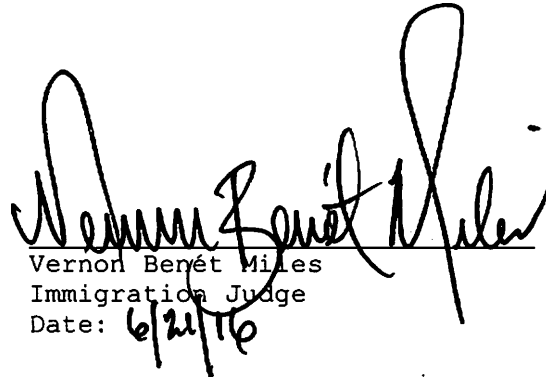 Vernon Benét Miles
Vernon Benét Miles
Immigration Judge
Date: 6/21/16